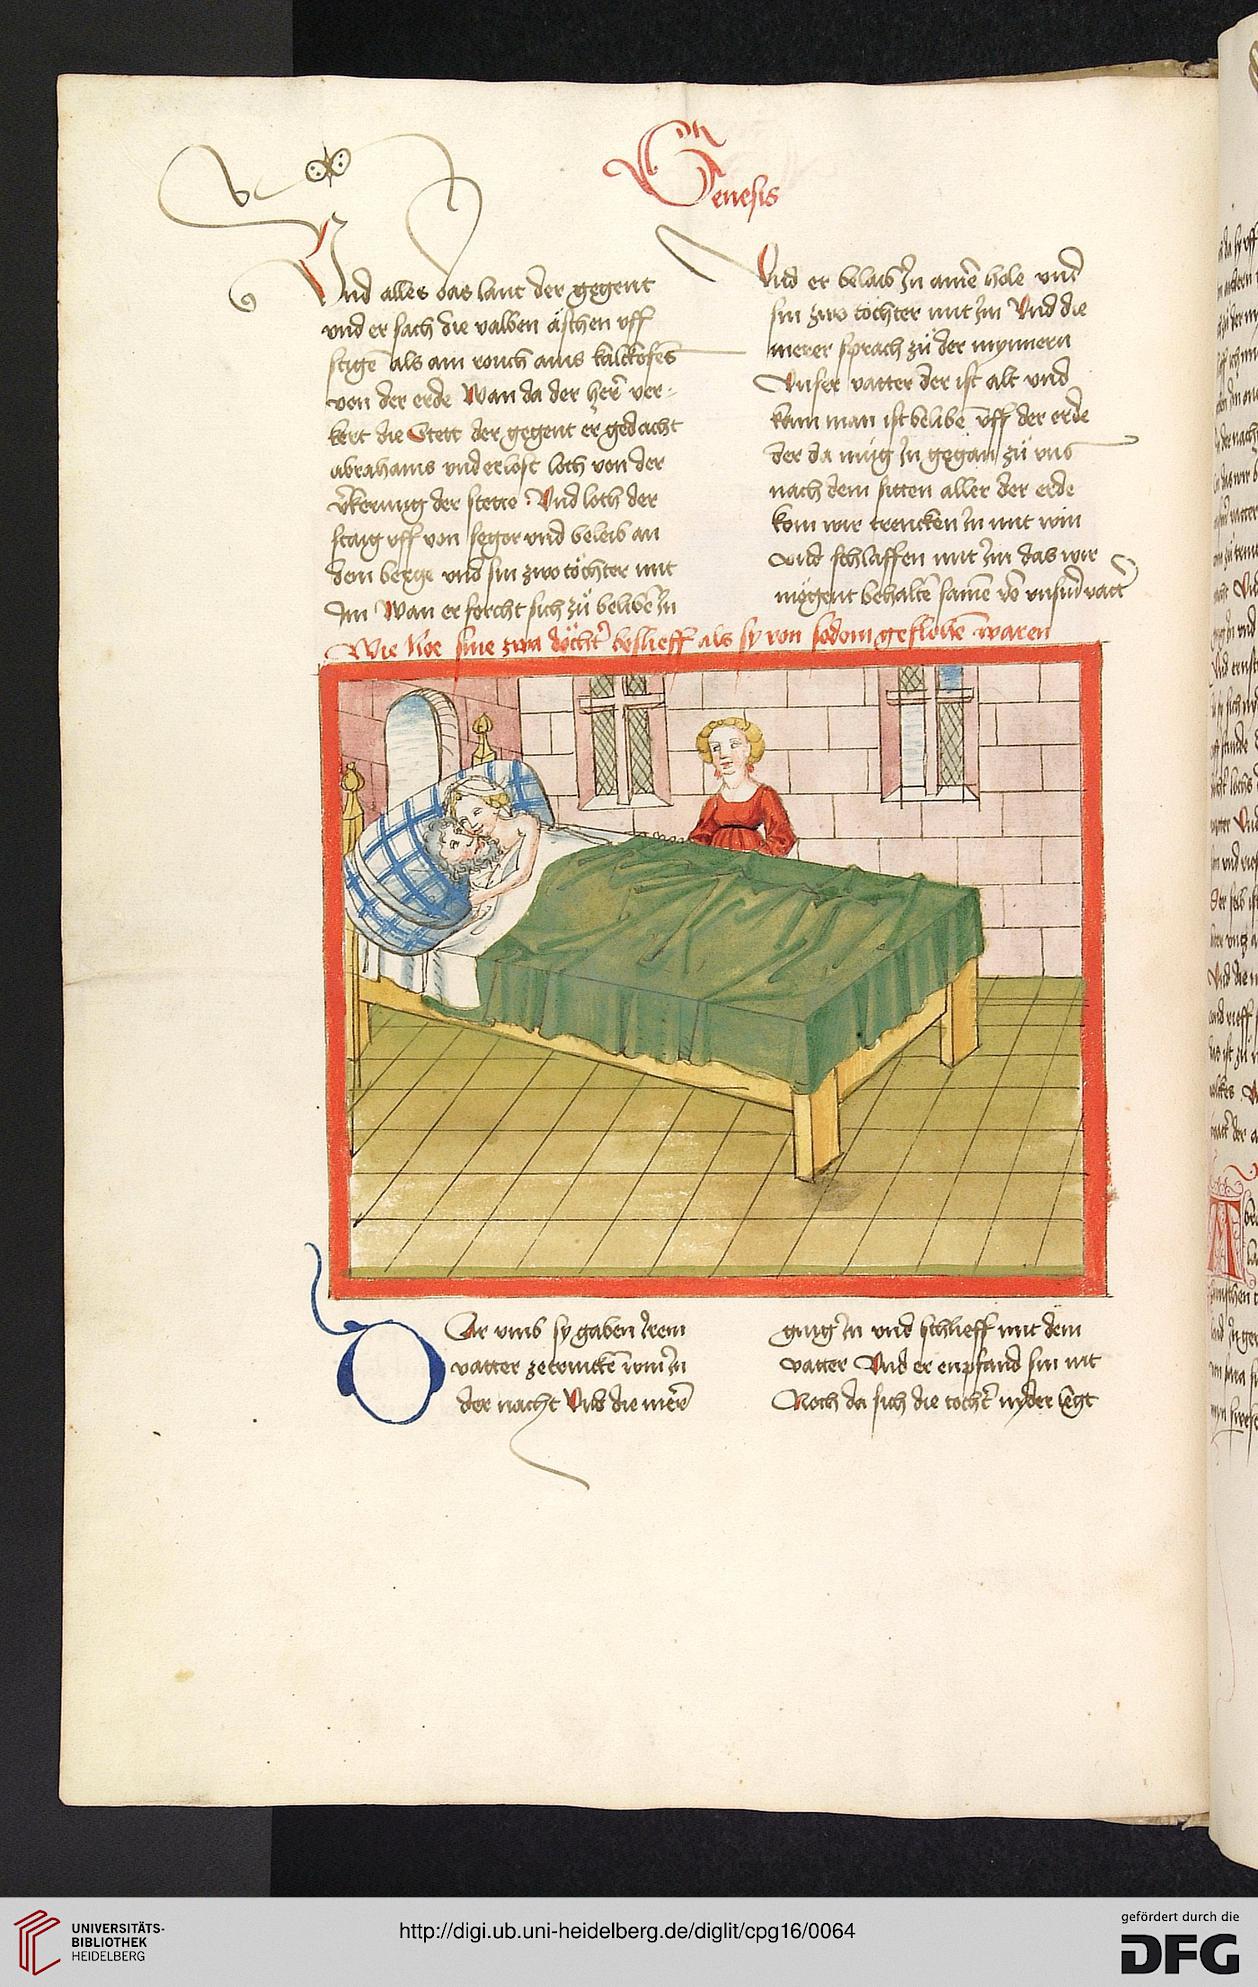 Genesis
Vnd alles das lant der gegent
vnd er sach die valben äschen vff
stigē als ain rouch ains kalckofēs
von der erde Wan da der herr ver-
kert die Stett der gegent er gedacht
abrahams vnd erlost loth von der
v̄kerung der stette Vnd loth der
staig vff von segor vnd beleib an
dem berge vnd sin zwo töchter mit
Im Wan er forcht sich zů belibē in
Vnd er belaib Jn ainē hole vnd
sin zwo töchter mit im Vnd die
merer sprach zů der mynnern
Vnser vatter der ist alt vnd
kain man ist belibē vff der erde
der da müg in gegan zů vns
nach dem sitten aller der erde
kom wir trencken in mit win
vnd schlaffen mit im das wir
mögent behaltē samē vō vnserm vatt̄
Wie Noe sine zwa döcht̄ beslieff als sy von sodom geflohē waren
Dar vmb sy gaben irem
vatter ze trinckē win in
der nacht Vnd die merer
ging in vnd schlieff mit dem
vatter Vnd er enpfand sin nit
Noch da sich die tocht̄ nyder legt
UNIVERSITÄTS-
BIBLIOTHEK
HEIDELBERG
http://digi.ub.uni-heidelberg.de/diglit/cpg16/0064
gefördert durch die
DFG